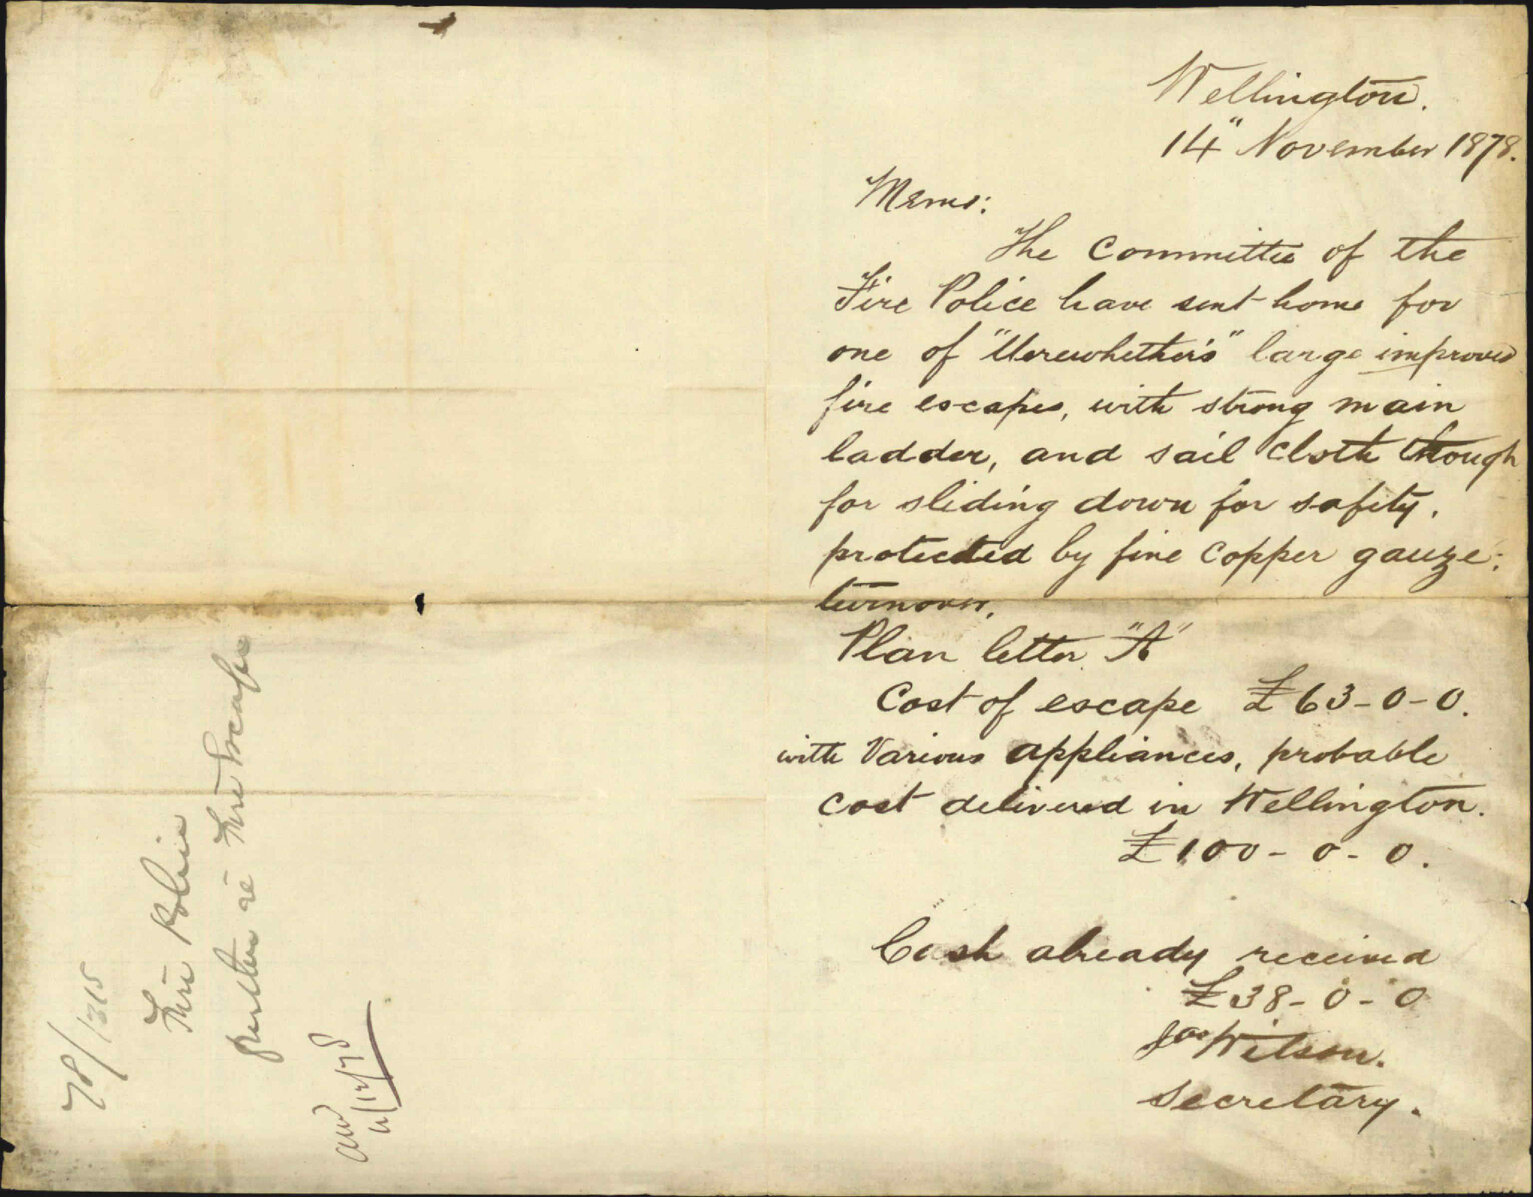 Wellington.
14" November 1878.
Memo:
The Committee of the
Fire Police have sent home for
one of "Merewhether's" large improved
fire escapes, with strong main
ladder, and sail cloth though
for sliding down for safety,
protected by fine copper gauze:
turnover.
Plan letter "A"
Cost of escape £63-0-0.
with various appliances, probable
cost delivered in Wellington.
£100-0-0.
Cash already received
£38-0-0
Jas Wilson.
Secretary.
78/1315
Fire Police
further re Fire Escape
11/12/78